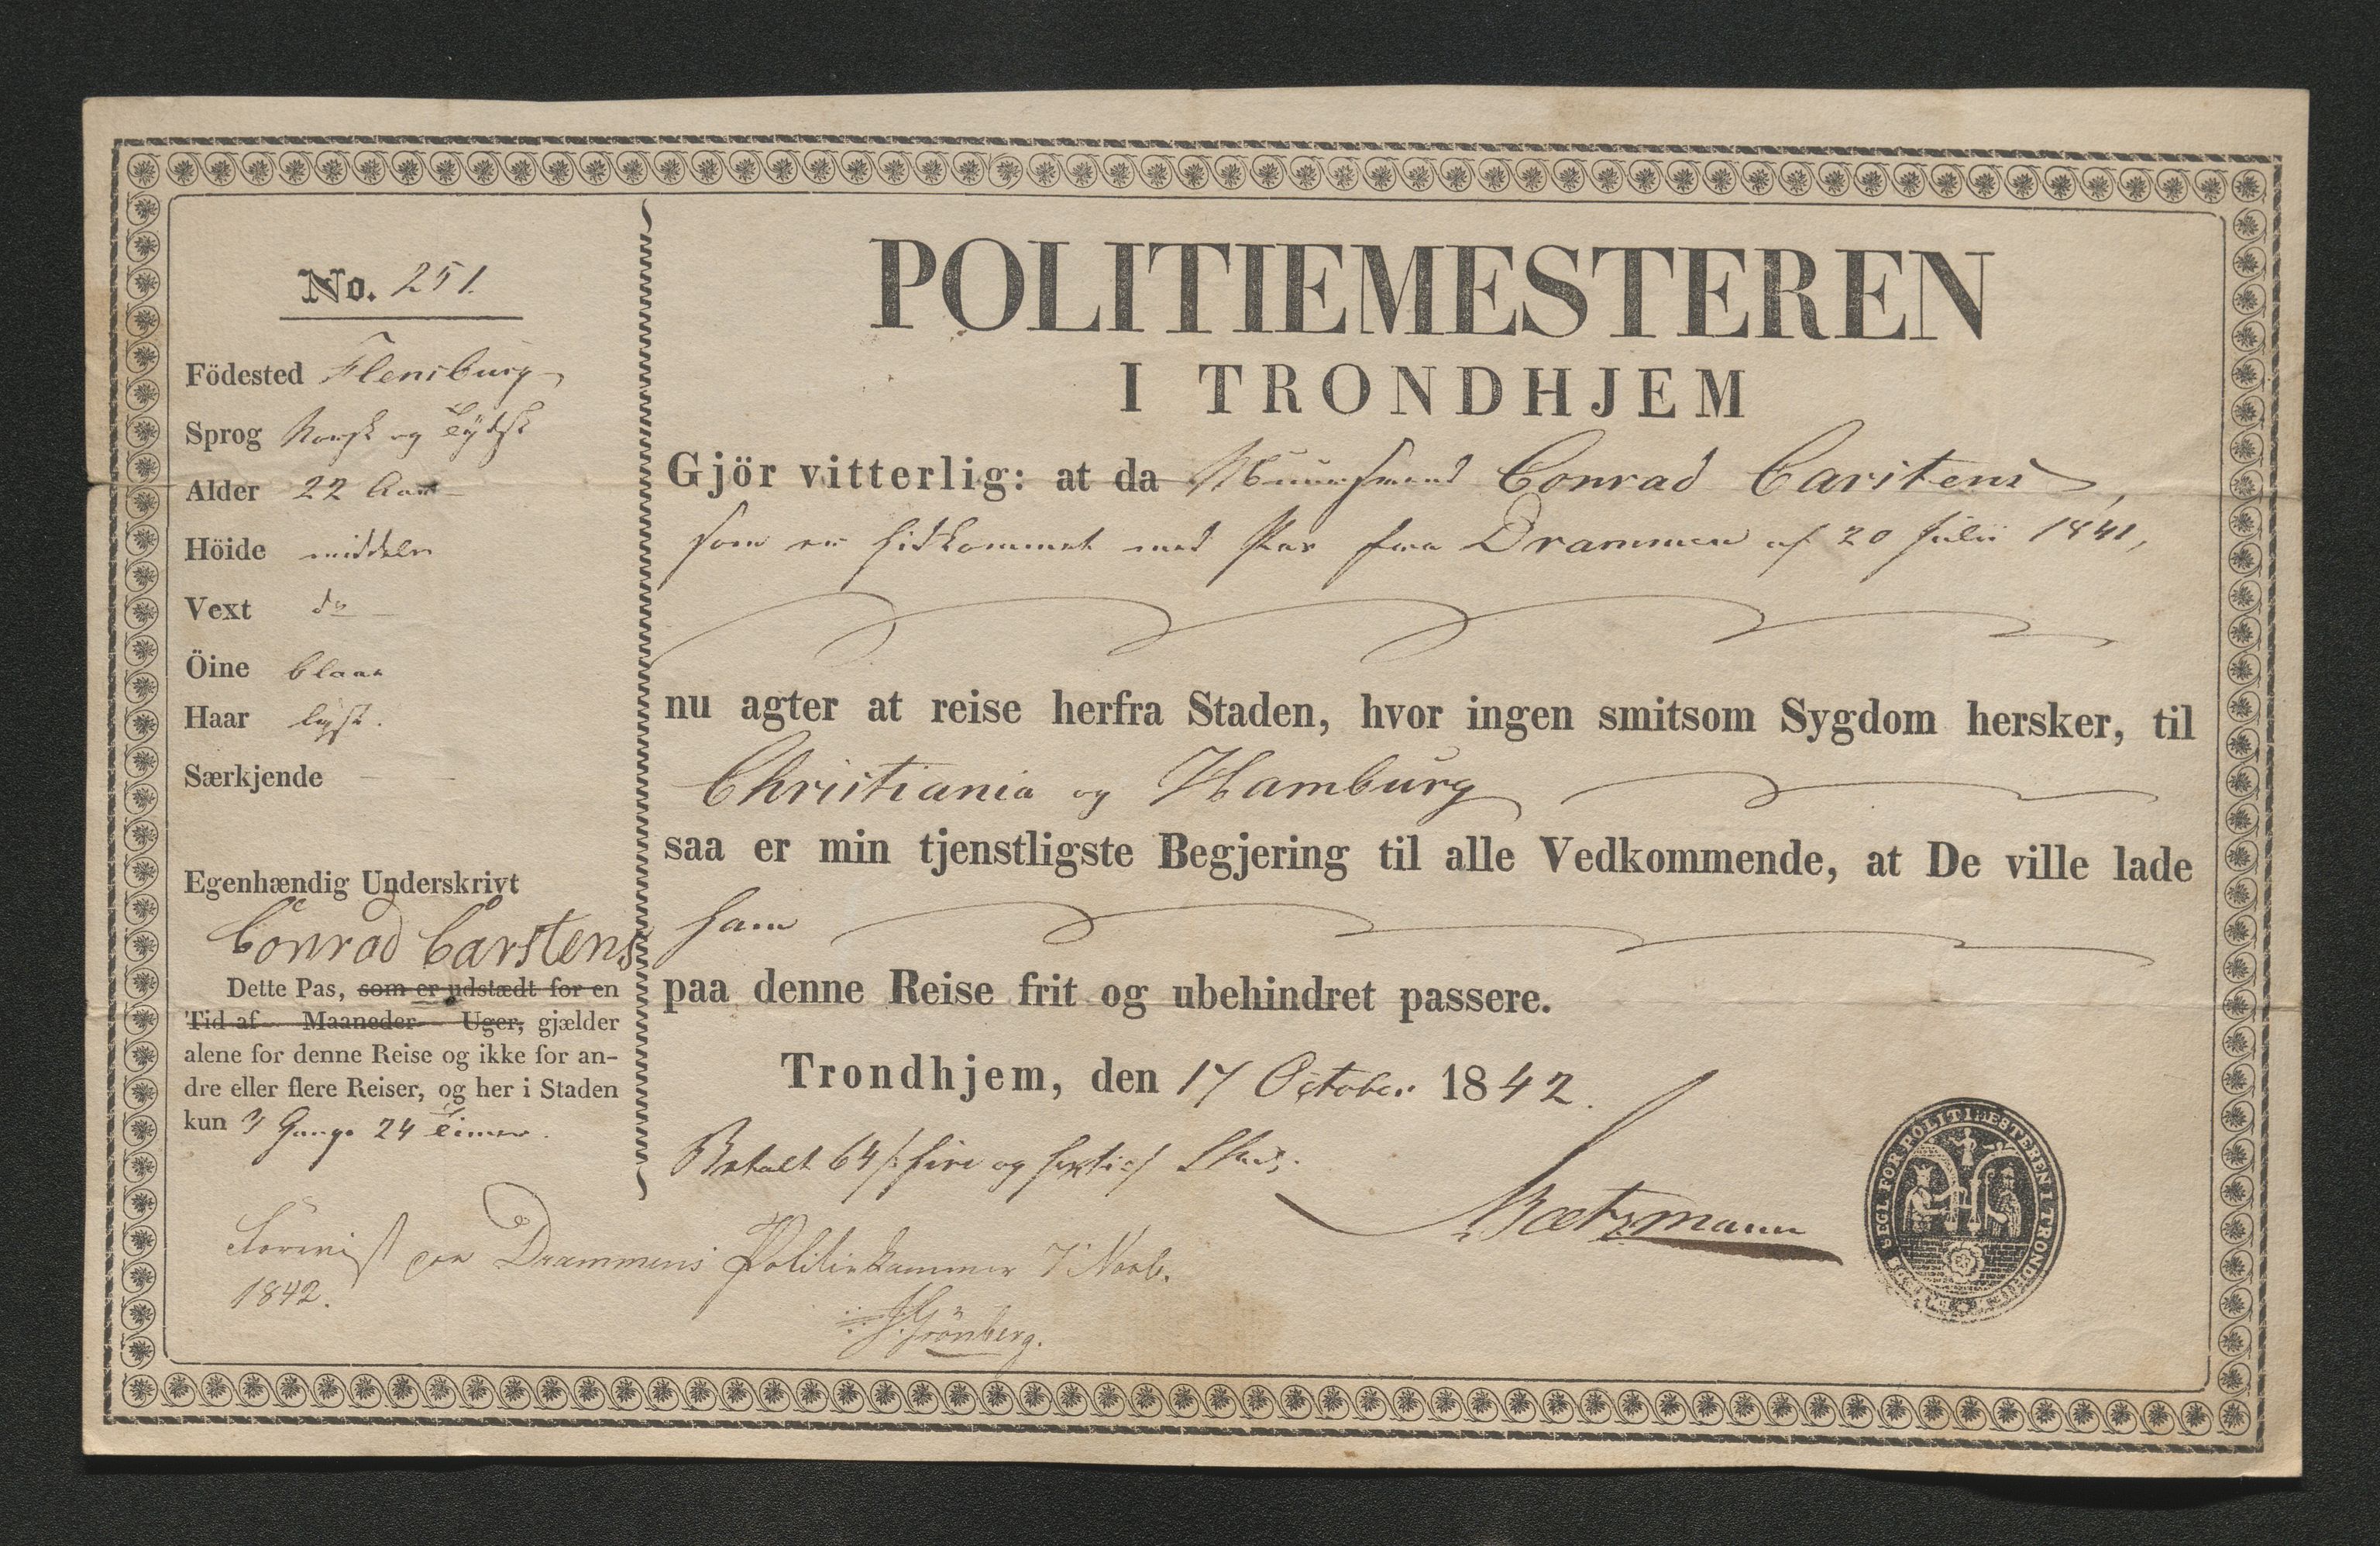 No. 251.
Födested Flensburg
Sprog Norsk og Tydsk
Alder 22 Aar
Höide middels
Vext do
Öine blaae
Haar lyst.
Særkjende
Egenhændig Underskrivt
Conrad Carstens
Dette Pas, som er udstædt for en
Tid af Maaneder Uger, gjælder
alene for denne Reise og ikke for an-
dre eller flere Reiser, og her i Staden
kun 3 Gange 24 Timer.
POLITIEMESTEREN
I TRONDHJEM
Gjör vitterlig: at da Conrad Carstens,
som er hidkommet med Pas fra Drammen af 20 Julii 1841,
nu agter at reise herfra Staden, hvor ingen smitsom Sygdom hersker, til
Christiania og Hamburg
saa er min tjenstligste Begjering til alle Vedkommende, at De ville lade
ham
paa denne Reise frit og ubehindret passere.
Trondhjem, den 17 October 1842.
Betalt 64 /: fire og sexti :/ Sk.
Baetzmann
SEGL FOR POLITIMESTEREN I TRONDHJEM
Foreviist paa Drammens Politiekammer 7 Novb.
1842.
Grönberg.